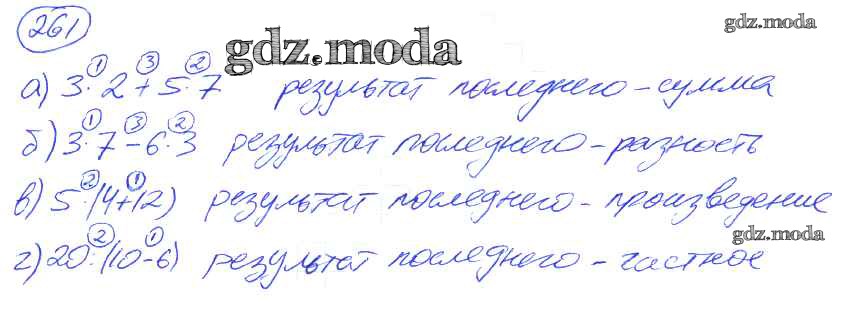 261
gdz.moda
gdz.moda
1 3 2
а) 3·2+5·7 результат последнего - сумма
1 3 2
б) 3·7-6·3 результат последнего - разность
2 1
в) 5·(4+12) результат последнего - произведение
gdz.moda
2 1
г) 20:(10-6) результат последнего - частное